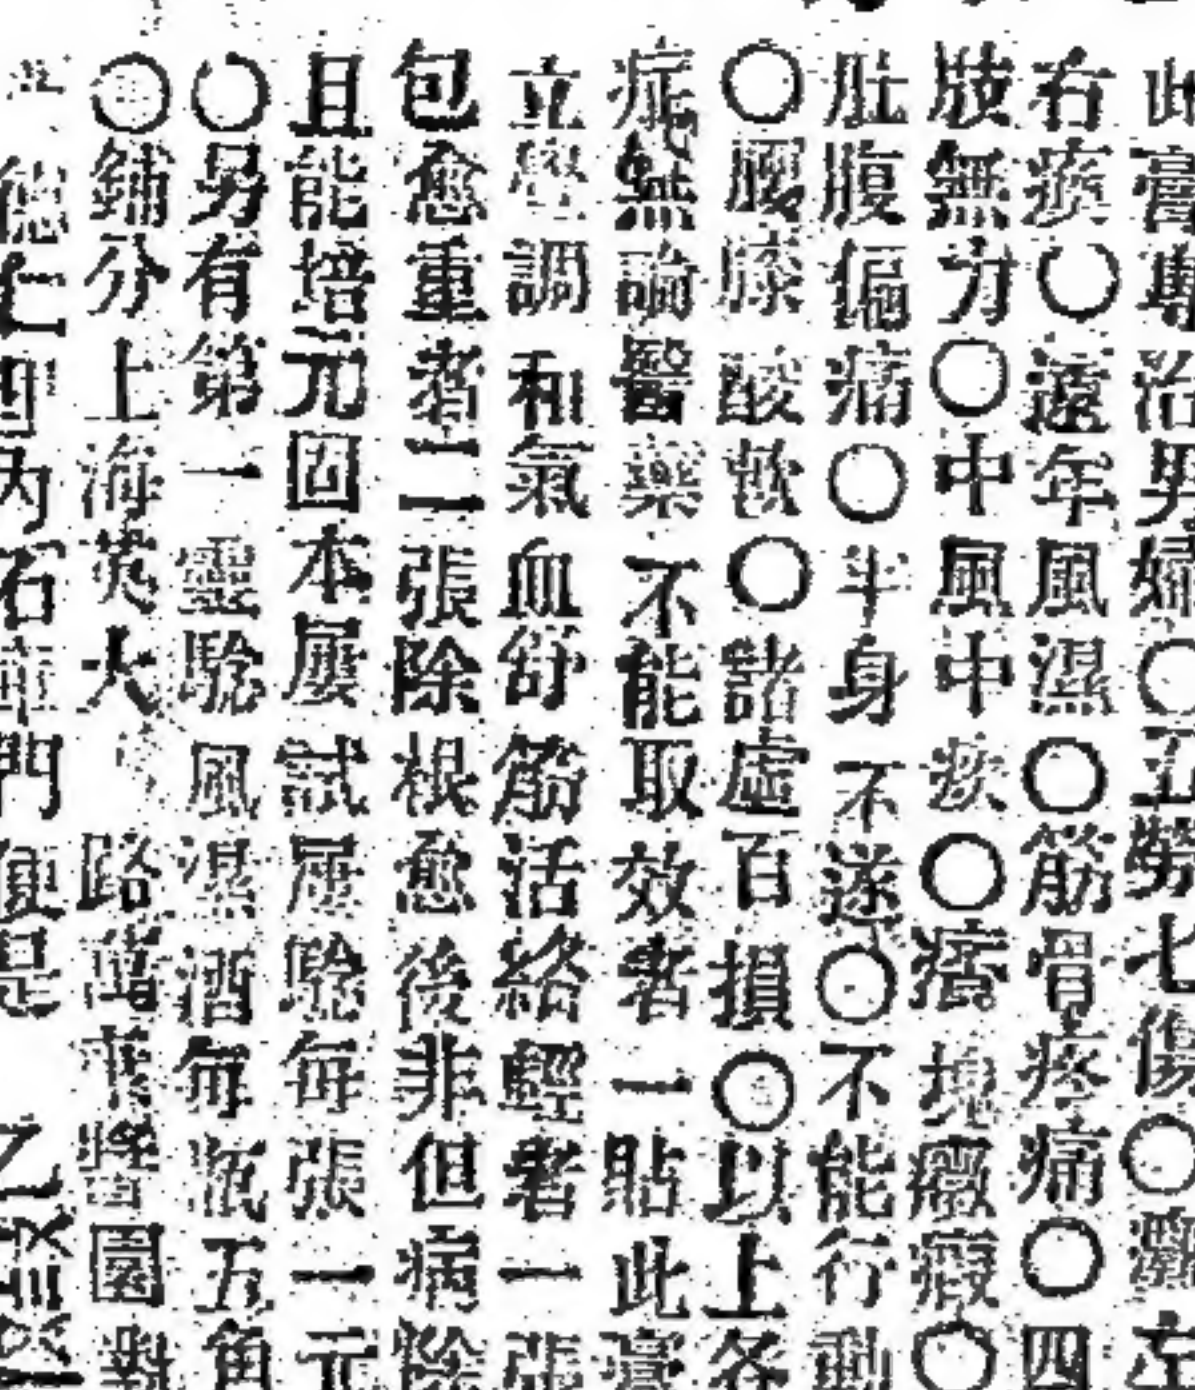 此膏專治男婦〇五勞七傷〇癱左
右瘓〇遠年風濕〇筋骨疼痛〇四
肢無力〇中風中痰〇痞塊癥瘕〇
肚腹偏痛〇半身不遂〇不能行動
〇腰膝酸軟〇諸虛百損〇以上各
症無論醫藥不能取效者一貼此膏
立壓調和氣血舒筋活絡輕者一張
包愈重者二張除根愈後非但病除
且能培元固本屢試屢驗每張一元
〇另有第一靈驗風濕酒每瓶五角
〇鋪分上海英大路萬對
德仁四內石門便是